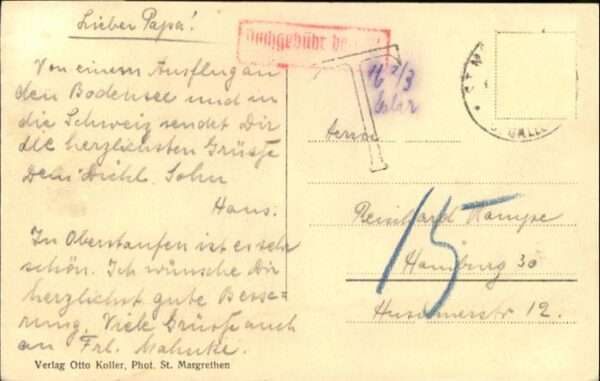 Lieber Papa!
Von einem Ausflug an
den Bodensee und in
die Schweiz sendet Dir
die herzlichsten Grüsse
Dein Dichl. Sohn
Hans.
In Oberstaufen ist es sehr
schön. Ich wünsche Dir
herzlichst gute Besse=
rung. Viele Grüsse auch
an Frl. Mahnke.
Verlag Otto Koller, Phot. St. Margrethen
Nachgebühr
T
Herrn
Reinhard Kampe
Hamburg 30
Husumerstr 12.
15